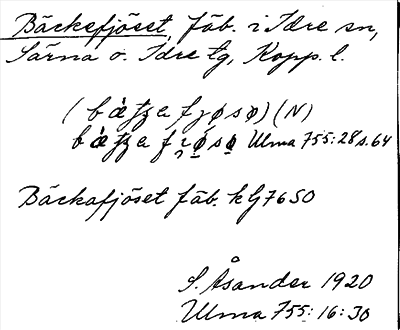 Bäckefjöset, fäb. i Idre sn,
Särna o. Idre tg, Kopp. l.
(N)
Ulma 755:28 s. 64
Bäckafjöset fäb. klj 7650
S. Åsander 1920
Ulma 755:16:30